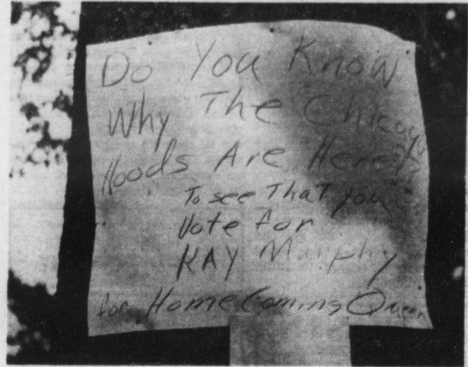 Do You Know
Why The Chicago
Hoods Are Here?
To see That you
Vote for
KAY Murphy
for Home Coming Queen